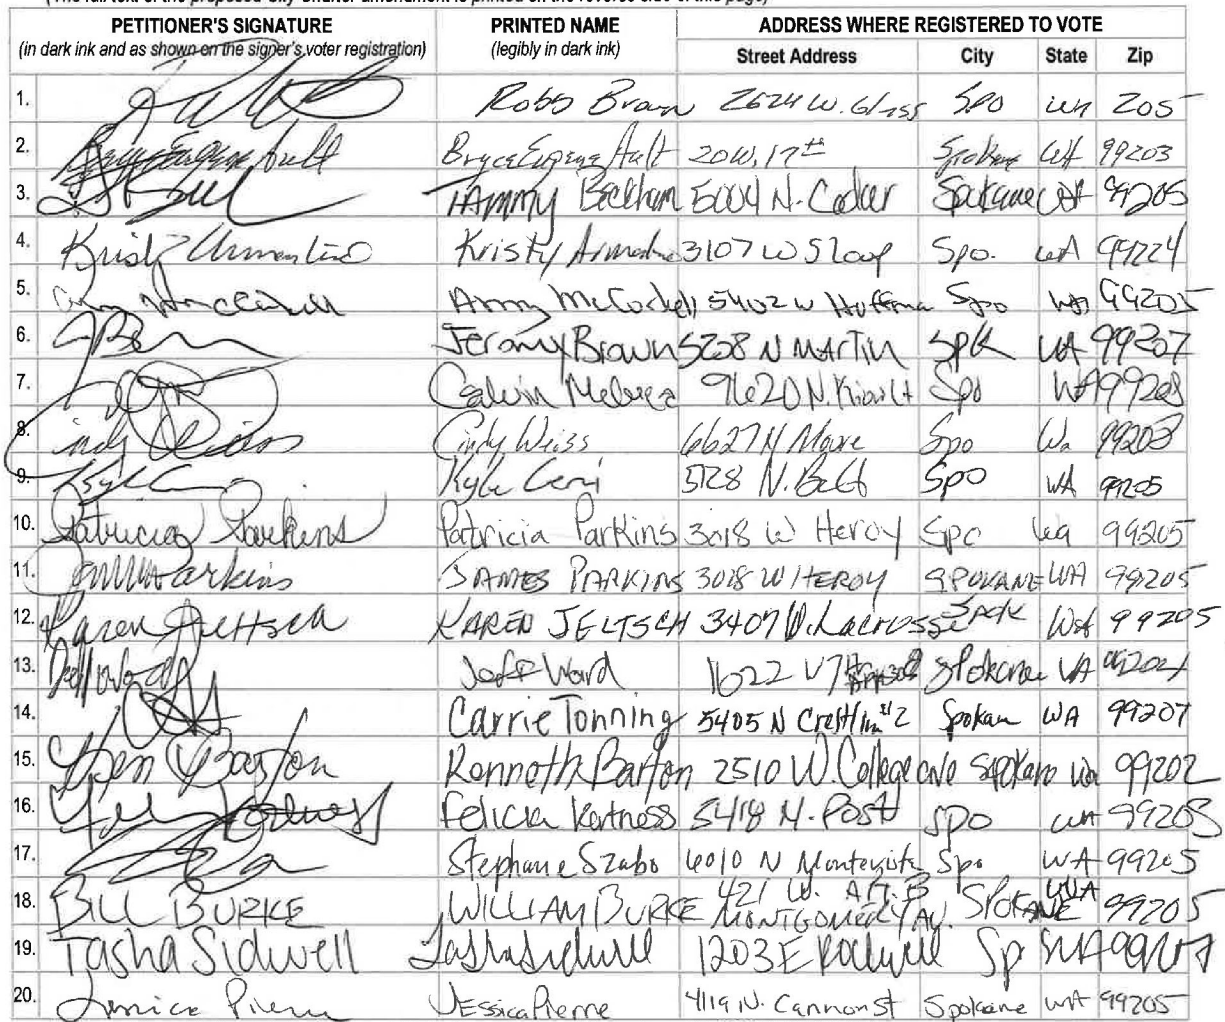 PETITIONER'S SIGNATURE PRINTED NAME ADDRESS WHERE REGISTERED TO VOTE
(in dark ink and as shown on the signer's voter registration) (legibly in dark ink) Street Address City State Zip
1. Robb Brown 2624 W. Glass Spo WA 205
2. Bryce Eugene Ault Bryce Eugene Ault 20 W. 17th Spokane WA 99203
3. TAMMY Beckham 5004 N. Spokane WA 99205
4. Kristy Armentino Kristy 3107 W Spo. WA 99224
5. Amy 5402 W Spo WA 99205
6. Jeromy Brown 5228 N MARTIN SPK WA 99207
7. Calvin 9620 N. Spo WA 99208
8. Cindy Weiss Cindy Weiss 6627 N Moore Spo Wa
9. Kyle 5128 N. Belt Spo WA 99205
10. Patricia Parkins Patricia Parkins 3018 W Heroy Spo Wa 99205
11. Parkins JAMES PARKINS 3018 W HEROY SPOKANE WA 99205
12. Karen Jeltsch KAREN JELTSCH 3407 W. Lacrosse Spok WA 99205
13. Jeff Ward 1622 W 7th Spokane WA 99204
14. Carrie Tonning 5405 N Crestline #2 Spokane WA 99207
15. Ken Barton Kenneth Barton 2510 W. College ave Spokane wa 99202
16. Felicia Kertness N. Post Spo WA
17. Stephanie Szabo 6010 N Montevista Spo WA 99205
18. BILL BURKE WILLIAM BURKE 421 W. APT. B MONTGOMERY AV. SPOKANE WA 99205
19. Tasha Sidwell Tasha Sidwell 1203 E Rockwell Sp WA 99207
20. Jessica Pierre Jessica Pierre 4119 N. Cannon St Spokane WA 99205